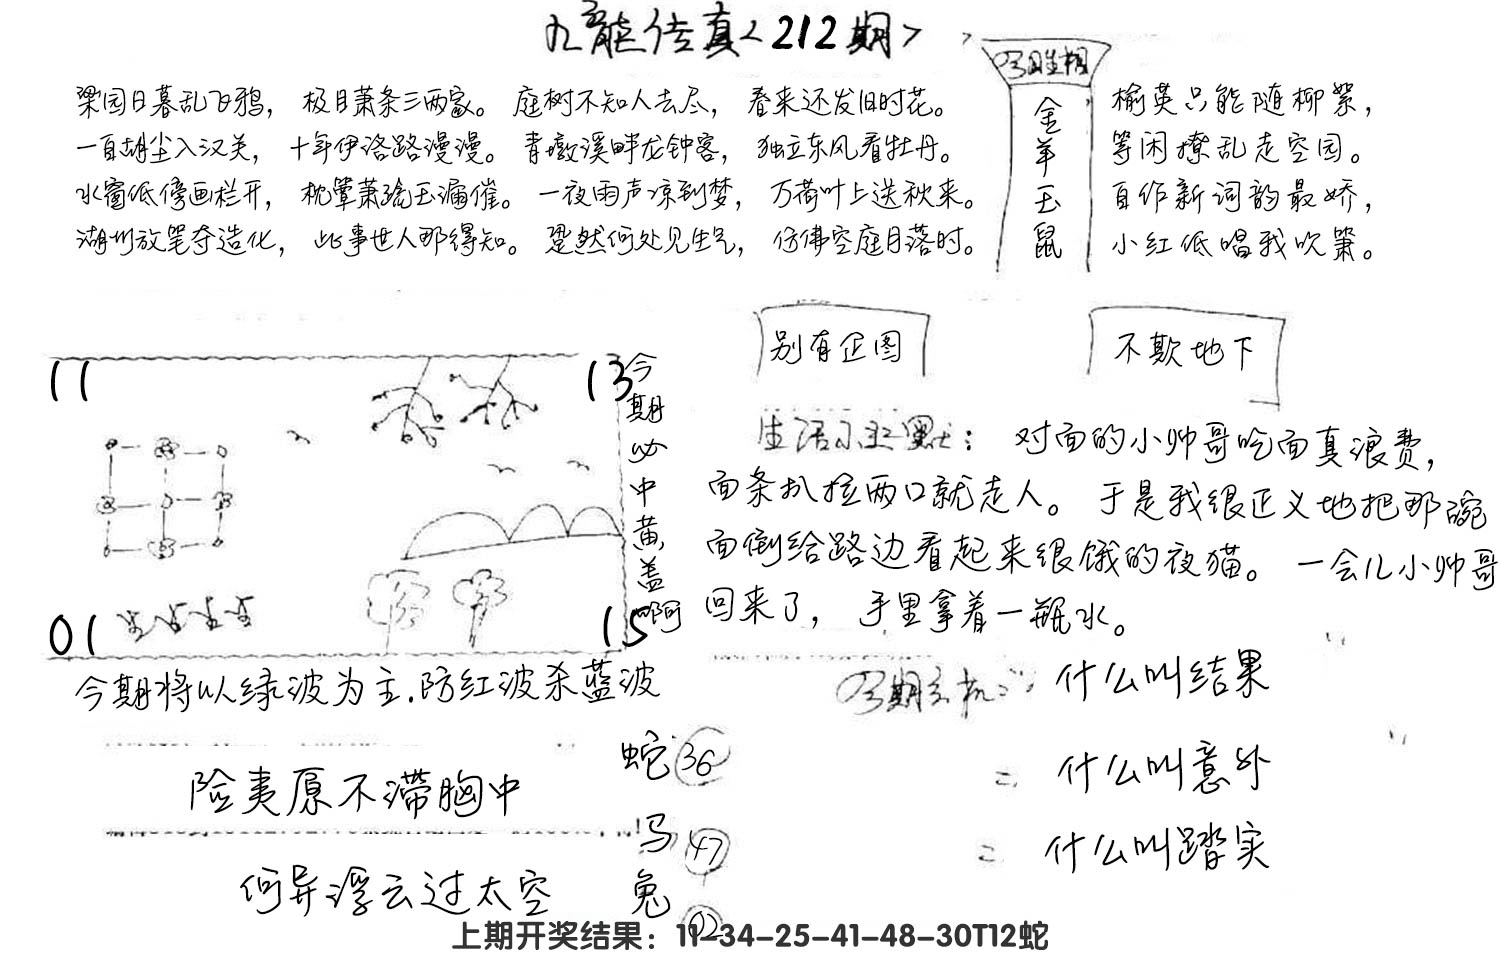 九龙传真<212期>
今日生相
梁园日暮乱飞鸦， 极目萧条三两家。 庭树不知人去尽， 春来还发旧时花。
一自胡尘入汉关， 十年伊洛路漫漫。 青墩溪畔龙钟客， 独立东风看牡丹。
水窗低傍画栏开， 枕簟萧疏玉漏催。 一夜雨声凉到梦， 万荷叶上送秋来。
湖州放笔夺造化， 此事世人那得知。 跫然何处见生气， 仿佛空庭月落时。
金羊玉鼠
榆英只能随柳絮，
等闲撩乱走空园。
自作新词韵最娇，
小红低唱我吹箫。
别有企图
不欺地下
11
13
01
15
今期必中黄盖啊
生活小幽默：对面的小帅哥吃面真浪费，
面条扒拉两口就走人。于是我很正义地把那碗
面倒给路边看起来很饿的夜猫。一会儿小帅哥
回来了，手里拿着一瓶水。
今期将以绿波为主.防红波杀蓝波
今期玄机：什么叫结果
二 什么叫意外
二 什么叫踏实
险夷原不滞胸中
何异浮云过太空
蛇 36
马 47
兔 02
上期开奖结果：11-34-25-41-48-30T12蛇